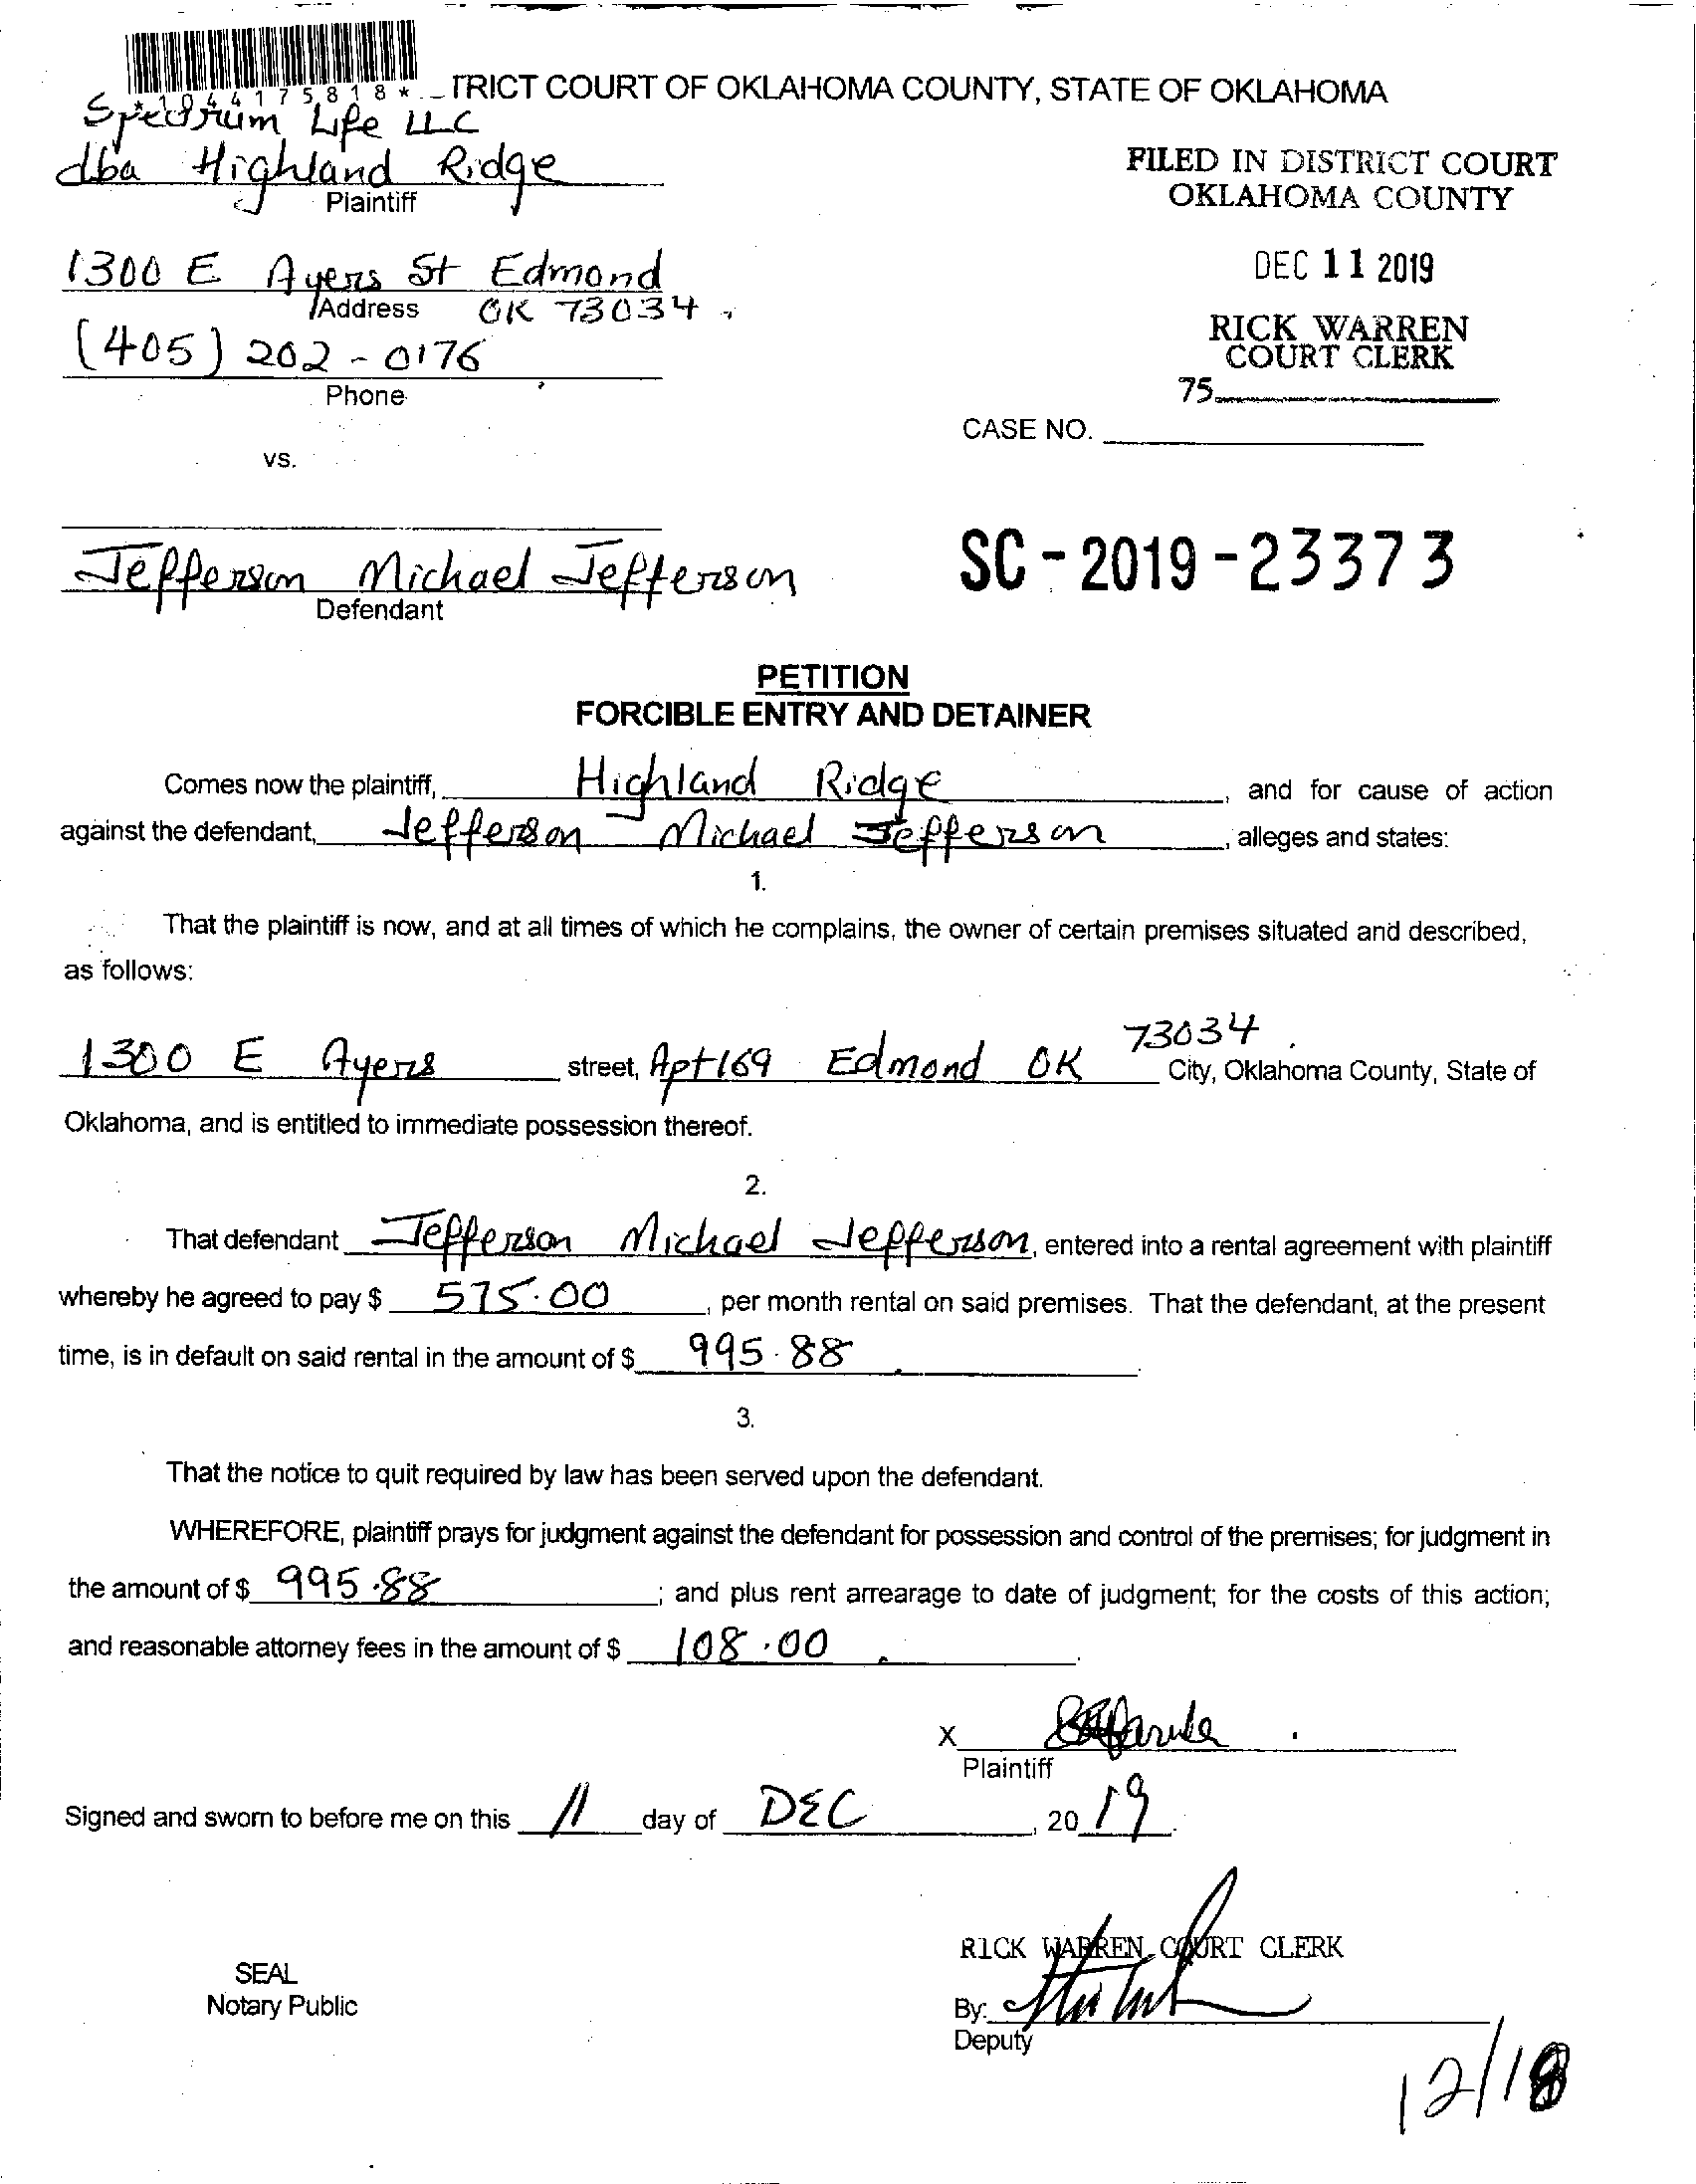 *1044175818*
TRICT COURT OF OKLAHOMA COUNTY, STATE OF OKLAHOMA
Spectrum Life LLC
dba Highland Ridge
Plaintiff
FILED IN DISTRICT COURT
OKLAHOMA COUNTY
1300 E Ayers St Edmond
Address OK 73034
DEC 11 2019
(405) 202-0176
Phone
RICK WARREN
COURT CLERK
75
CASE NO.
vs.
Jefferson Michael Jefferson
Defendant
SC-2019-23373
PETITION
FORCIBLE ENTRY AND DETAINER
Comes now the plaintiff, Highland Ridge, and for cause of action
against the defendant, Jefferson Michael Jefferson, alleges and states:
1.
That the plaintiff is now, and at all times of which he complains, the owner of certain premises situated and described,
as follows:
1300 E Ayers street, Apt 169 Edmond OK 73034 City, Oklahoma County, State of
Oklahoma, and is entitled to immediate possession thereof.
2.
That defendant Jefferson Michael Jefferson, entered into a rental agreement with plaintiff
whereby he agreed to pay $ 575.00, per month rental on said premises. That the defendant, at the present
time, is in default on said rental in the amount of $ 995.88.
3.
That the notice to quit required by law has been served upon the defendant.
WHEREFORE, plaintiff prays for judgment against the defendant for possession and control of the premises; for judgment in
the amount of $ 995.88; and plus rent arrearage to date of judgment; for the costs of this action;
and reasonable attorney fees in the amount of $ 108.00.
X
Plaintiff
Signed and sworn to before me on this 11 day of DEC, 2019.
RICK WARREN, COURT CLERK
SEAL
Notary Public
By:
Deputy
12/18